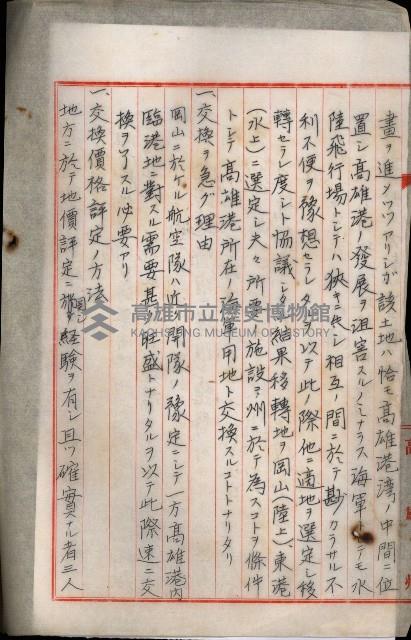 畫ヲ進メツツアリシガ該土地ハ恰モ高雄港湾ノ中間ニ位
置シ高雄港ノ発展ヲ阻害スルノミナラス海軍トシテモ水
陸飛行場トシテハ狭キニ失シ相互ノ間ニ於テ尠カラサル不
利不便ヲ豫想セラレタルヲ以テ此ノ際他ニ適地ヲ選定シ移
轉セラレ度シト協議シタル結果移轉地ヲ岡山(陸上)、東港
(水上)ニ選定シ夫々所要ノ施設ヲ州ニ於テ為スコトヲ條件
トシテ高雄港所在ノ海軍用地ト交換スルコトナリタリ
一、交換ヲ急グ理由
岡山ニ於ケル航空隊ハ近ク開隊ノ豫定ニシテ一方高雄港内
臨港地ニ對スル需要甚ダ旺盛トナリタルヲ以テ此際速ニ交
換ヲ了スル必要アリ
一、交換價格評定ノ方法
地方ニ於テ地價評定ニ関シ経験ヲ有シ且ツ確實ナル者三人
高雄市立歷史博物館
KAOHSIUNG MUSEUM OF HISTORY
高雄州